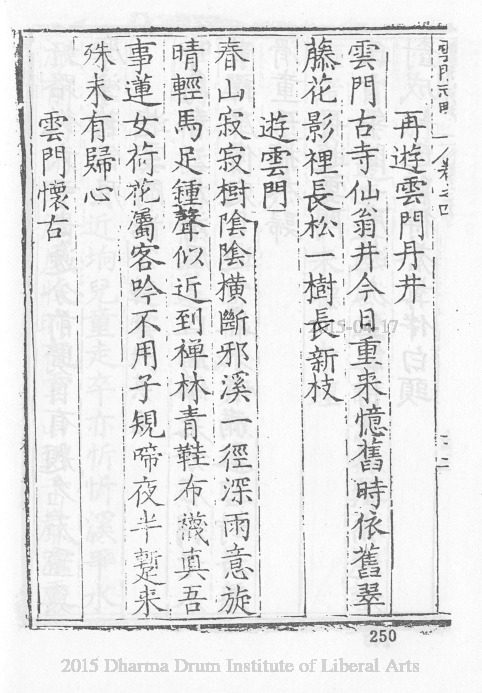 再遊雲門丹井
雲門古寺仙翁井今日重来憶舊時依舊翠
藤花影裡長松一樹長新枝
遊雲門
春山寂寂樹陰陰橫斷邪溪一徑深雨意旋
晴輕馬足鍾聲似近到禅林青鞋布襪真吾
事蓮女荷花屬客吟不用子規啼夜半蹔来
殊未有歸心
雲門懷古
250
2015-04-17
2015 Dharma Drum Institute of Liberal Arts